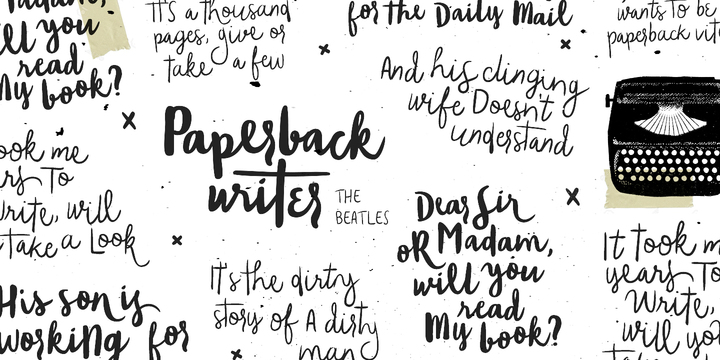 Madam,
will you
read
My book?
It's a thousand
pages, give or
take a few
for the Daily Mail
wants to be
paperback
And his clinging
wife Doesn't
understand
Paperback
writer
THE
BEATLES
ook me
ars To
Write, will
take a Look
Dear Sir
oR Madam,
will you
read
My book?
His son is
working for
It's the dirty
story of A dirty
man
It Took m
years To
Write,
will yo